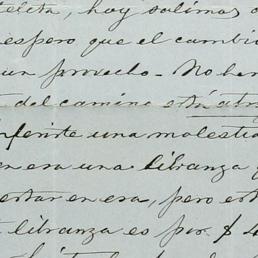 hoy salimos
espero que el cambio
un provecho - No he
del camino está atra
inferirte una molestia
en era una libranza q
estar en esa, pero est
libranza es por $ 4